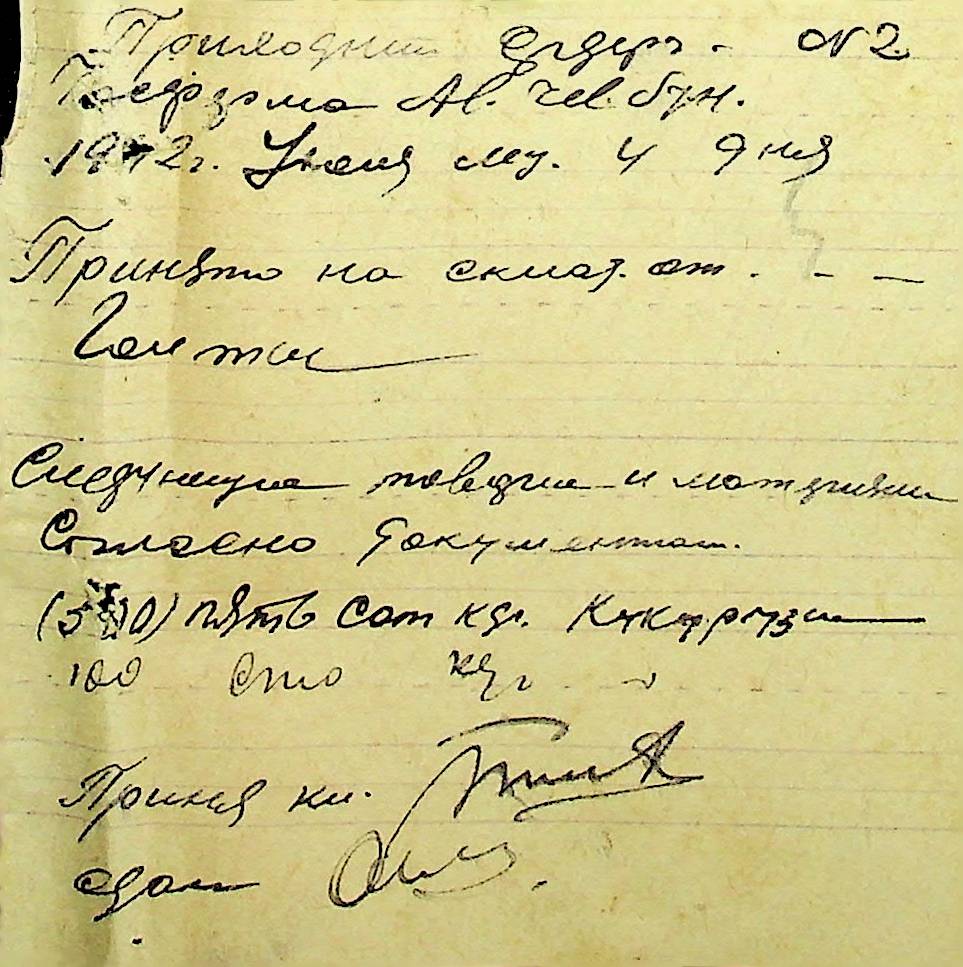 Приходний ордеръ - №2
Ав. Чев. бун.
1942г. Июля м. 4 дня
Принято на склад. от. - -
Следующие товари и материяли
Согласно документам.
(500) пять сот кгр. Кукурузи
100 сто кгр
Принял кл.
сдал